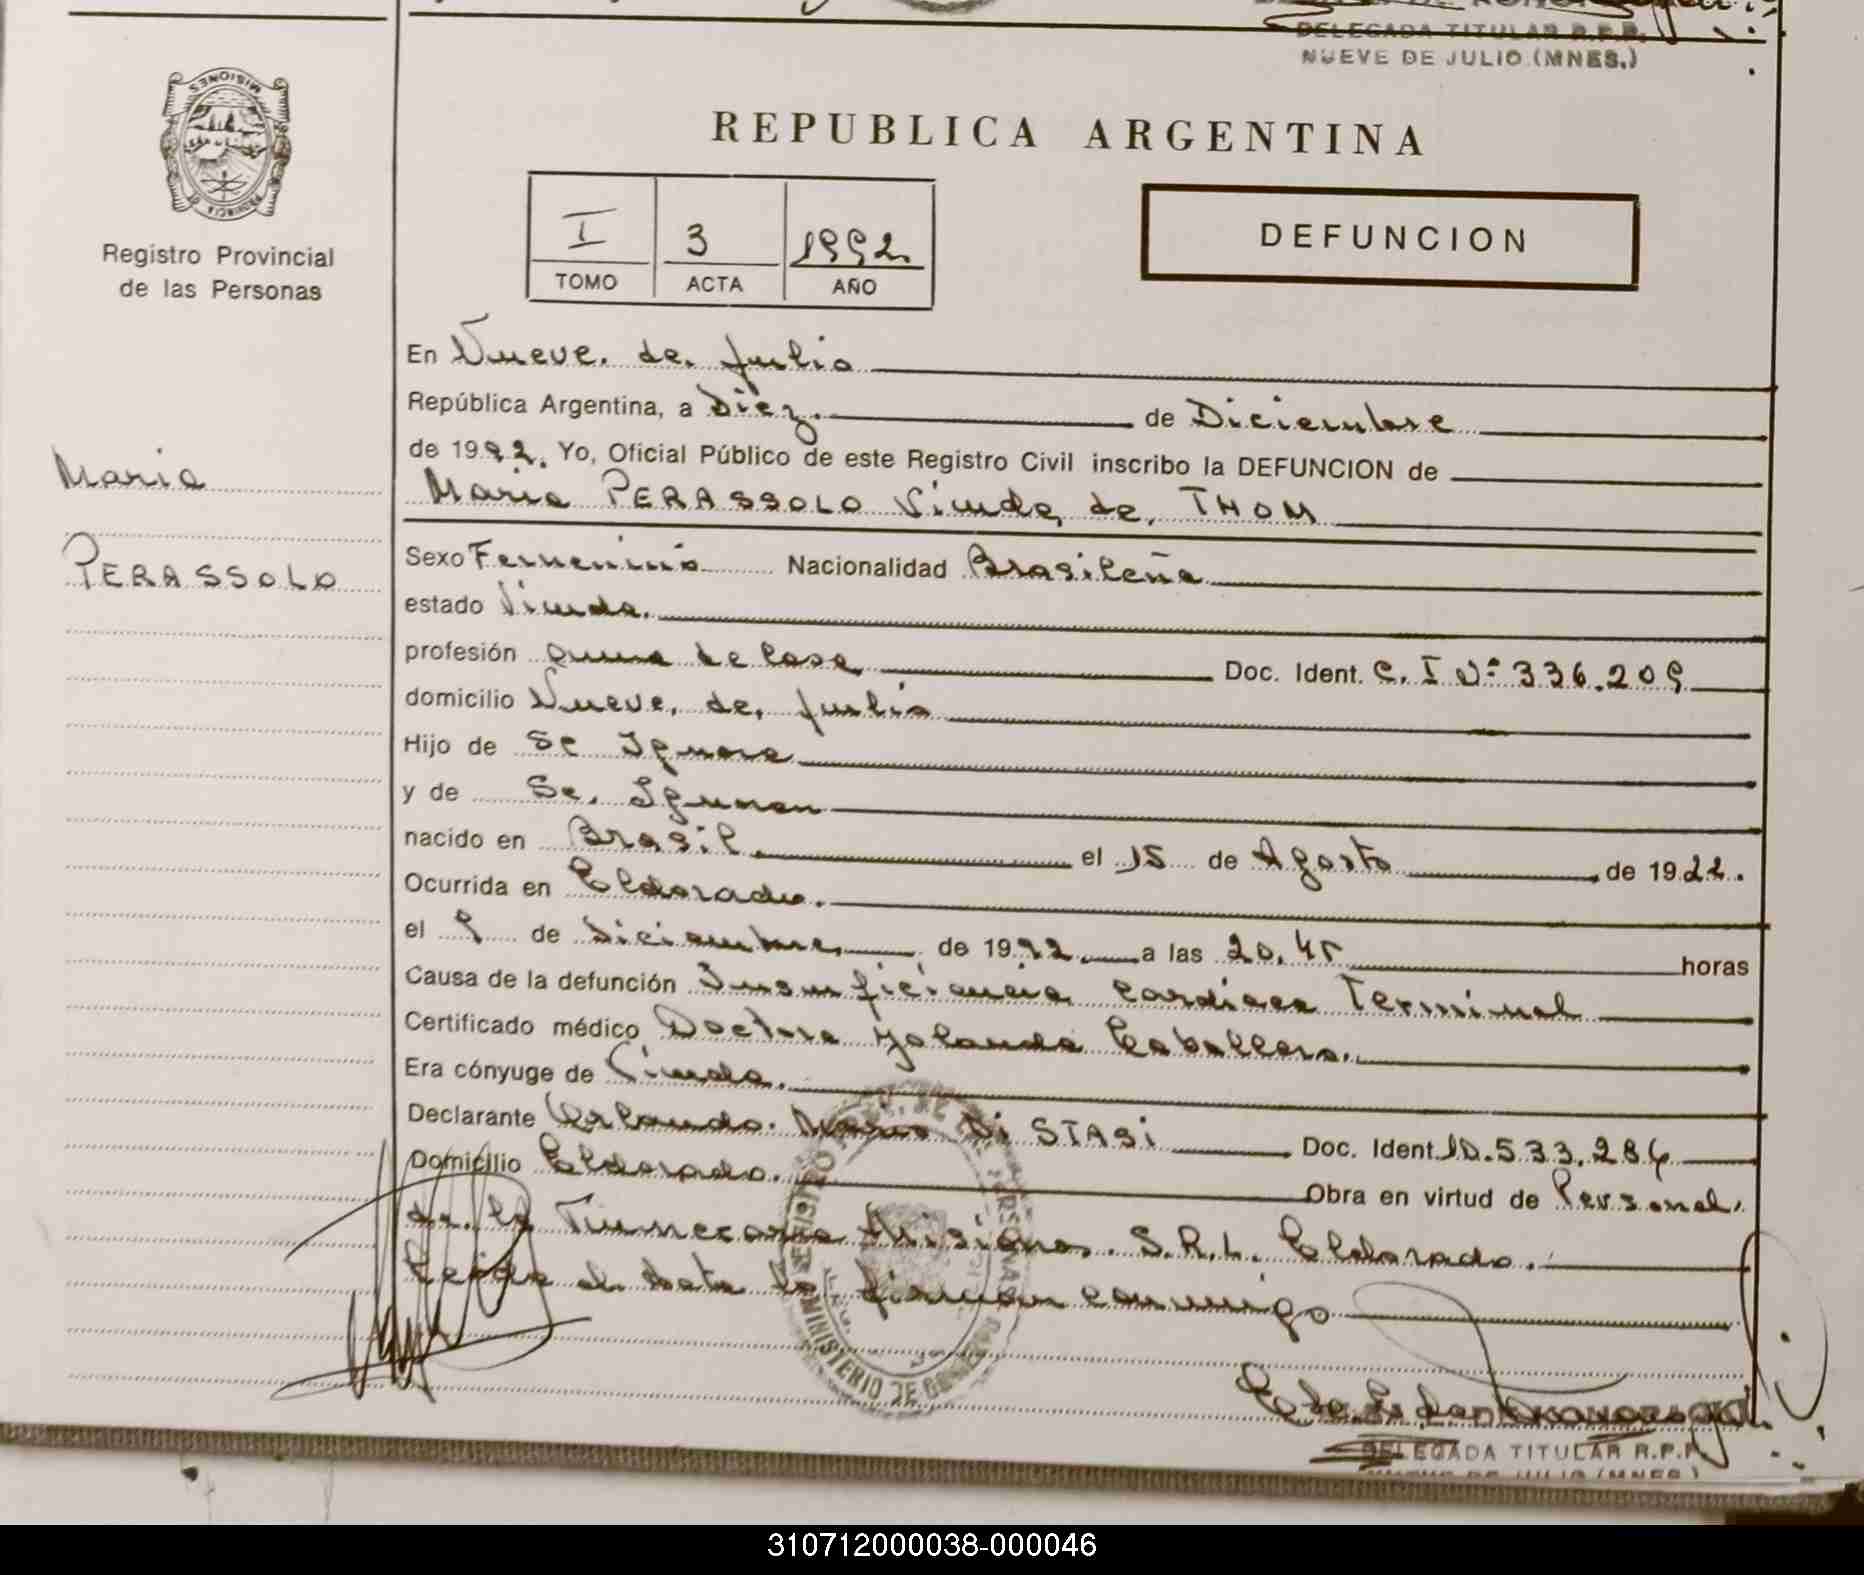 DELEGADA TITULAR R.P.P.
NUEVE DE JULIO (MNES.)
MISIONES
PROVINCIA D
Registro Provincial
de las Personas
REPUBLICA ARGENTINA
I 3 1992
TOMO ACTA AÑO
DEFUNCION
En Nueve de Julio
República Argentina, a Diez de Diciembre
de 1992. Yo, Oficial Público de este Registro Civil inscribo la DEFUNCION de
Maria PERASSOLO Viuda de THOM
Maria
PERASSOLO
Sexo Femenino Nacionalidad Brasileña
estado Viuda.
profesión ama de casa Doc. Ident. C. I Nº 336.209
domicilio Nueve de Julio
Hijo de Se Ignora
y de Se Ignoran
nacido en Brasil el 15 de Agosto de 1922.
Ocurrida en Eldorado.
el 9 de Diciembre de 1992 a las 20,45 horas
Causa de la defunción Insuficiencia Cardiaca Terminal
Certificado médico Doctora Yolanda Caballero.
Era cónyuge de Viuda.
Declarante Orlando Mario Di STASI Doc. Ident. 10.533.286
Domicilio Eldorado.
Obra en virtud de Personal
de la Funeraria Misiones S.R.L. Eldorado.
Leida el acta la firman conmigo
REGISTRO DE LAS PERSONAS
MINISTERIO DE
DELEGADA TITULAR R.P.P.
NUEVE DE JULIO (MNES.)
310712000038-000046